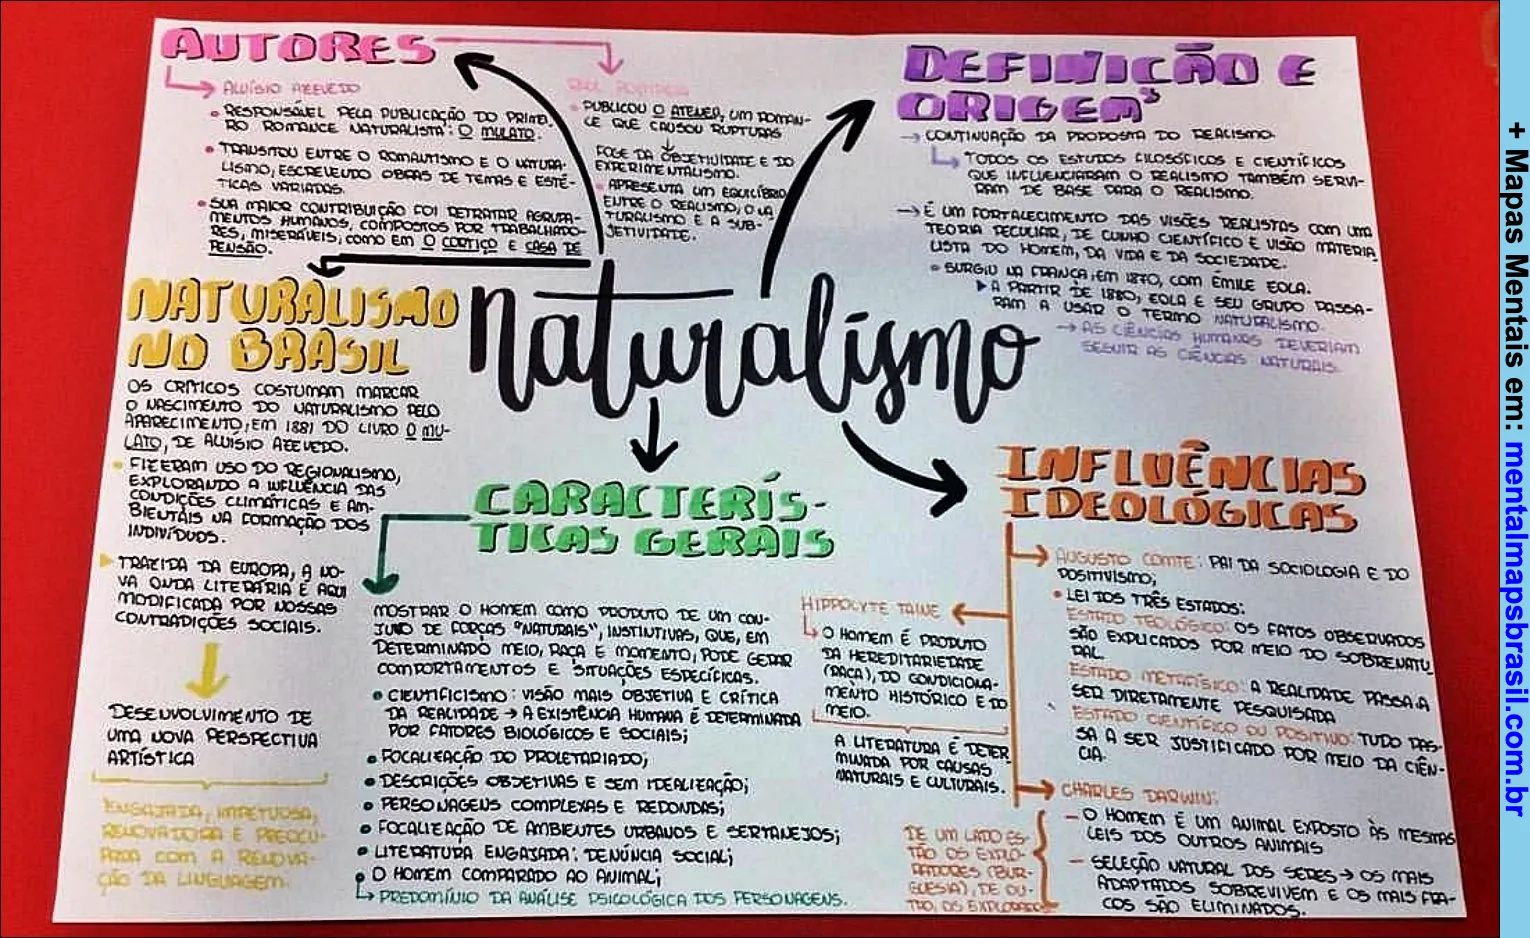 AUTORES
ALUÍSIO AZEVEDO
• RESPONSÁVEL PELA PUBLICAÇÃO DO PRIMEI-
RO ROMANCE NATURALISTA: O MULATO.
• TRANSITOU ENTRE O ROMANTISMO E O NATURA-
LISMO, ESCREVENDO OBRAS DE TEMAS E ESTÉ-
TICAS VARIADAS.
• SUA MAIOR CONTRIBUIÇÃO FOI RETRATAR AGRUPA-
MENTOS HUMANOS, COMPOSTOS POR TRABALHADO-
RES, MISERÁVEIS, COMO EM O CORTIÇO E CASA DE
PENSÃO.
RAUL POMPEIA
• PUBLICOU O ATENEA, UM ROMAN-
CE QUE CAUSOU RUPTURAS
FOGE DA OBJETIVIDADE E DO
EXPERIMENTALISMO.
• APRESENTA UM EQUILÍBRIO
ENTRE O REALISMO, O NA
TURALISMO E A SUB-
JETIVIDADE.
DEFINIÇÃO E
ORIGEM
→ CONTINUAÇÃO DA PROPOSTA DO REALISMO.
TODOS OS ESTUDOS FILOSÓFICOS E CIENTÍFICOS
QUE INFLUENCIARAM O REALISMO TAMBÉM SERVI-
RAM DE BASE PARA O REALISMO.
→ É UM FORTALECIMENTO DAS VISÕES REALISTAS COM UMA
TEORIA PECULIAR, DE CUNHO CIENTÍFICO E VISÃO MATERIA
LISTA DO HOMEM, DA VIDA E DA SOCIEDADE.
• SURGIU NA FRANÇA, EM 1870, COM ÉMILE ZOLA.
▶ A PARTIR DE 1880, ZOLA E SEU GRUPO PASSA-
RAM A USAR O TERMO NATURALISMO.
→ AS CIÊNCIAS HUMANAS DEVERIAM
SEGUIR AS CIÊNCIAS NATURAIS.
naturalismo
NATURALISMO
NO BRASIL
OS CRÍTICOS COSTUMAM MARCAR
O NASCIMENTO DO NATURALISMO PELO
APARECIMENTO, EM 1881 DO LIVRO O MU-
LATO, DE ALUÍSIO AZEVEDO.
• FIZERAM USO DO REGIONALISMO,
EXPLORANDO A INFLUÊNCIA DAS
CONDIÇÕES CLIMÁTICAS E AM-
BIENTAIS NA FORMAÇÃO DOS
INDIVÍDUOS.
▶ TRAZIDA DA EUROPA, A NO-
VA ONDA LITERÁRIA É AQUI
MODIFICADA POR NOSSAS
CONTRADIÇÕES SOCIAIS.
DESENVOLVIMENTO DE
UMA NOVA PERSPECTIVA
ARTÍSTICA
ENGAJADA, IMPETUOSA,
RENOVADORA E PREOCU-
PADA COM A RENOVA-
ÇÃO DA LINGUAGEM.
CARACTERÍS-
TICAS GERAIS
MOSTRAR O HOMEM COMO PRODUTO DE UM CON-
JUNO DE FORÇAS "NATURAIS", INSTINTIVAS, QUE, EM
DETERMINADO MEIO, RAÇA E MOMENTO, PODE GERAR
COMPORTAMENTOS E SITUAÇÕES ESPECÍFICAS.
• CIENTIFICISMO: VISÃO MAIS OBJETIVA E CRÍTICA
DA REALIDADE → A EXISTÊNCIA HUMANA É DETERMINADA
POR FATORES BIOLÓGICOS E SOCIAIS;
• FOCALIZAÇÃO DO PROLETARIADO;
• DESCRIÇÕES OBJETIVAS E SEM IDEALIZAÇÃO;
• PERSONAGENS COMPLEXAS E REDONDAS;
• FOCALIZAÇÃO DE AMBIENTES URBANOS E SERTANEJOS;
• LITERATURA ENGAJADA: DENÚNCIA SOCIAL;
• O HOMEM COMPARADO AO ANIMAL;
PREDOMÍNIO DA ANÁLISE PSICOLÓGICA DOS PERSONAGENS.
INFLUÊNCIAS
IDEOLÓGICAS
AUGUSTO COMTE: PAI DA SOCIOLOGIA E DO
POSITIVISMO;
• LEI DOS TRÊS ESTADOS:
ESTADO TEOLÓGICO: OS FATOS OBSERVADOS
SÃO EXPLICADOS POR MEIO DO SOBRENATU
RAL.
ESTADO METAFÍSICO: A REALIDADE PASSA A
SER DIRETAMENTE PESQUISADA
ESTADO CIENTÍFICO OU POSITIVO: TUDO PAS-
SA A SER JUSTIFICADO POR MEIO DA CIÊN-
CIA.
HIPPOLYTE TAINE
O HOMEM É PRODUTO
DA HEREDITARIEDADE
(RAÇA), DO CONDICIONA-
MENTO HISTÓRICO E DO
MEIO.
A LITERATURA É DETER
MINADA POR CAUSAS
NATURAIS E CULTURAIS.
CHARLES DARWIN:
– O HOMEM É UM ANIMAL EXPOSTO ÀS MESMAS
LEIS DOS OUTROS ANIMAIS
– SELEÇÃO NATURAL DOS SERES → OS MAIS
ADAPTADOS SOBREVIVEM E OS MAIS FRA-
COS SÃO ELIMINADOS.
DE UM LADO ES-
TÃO OS EXPLO-
RADORES (BUR-
GUESIA), DE OU-
TRO, OS EXPLORADOS
+ Mapas Mentais em: mentalmapsbrasil.com.br